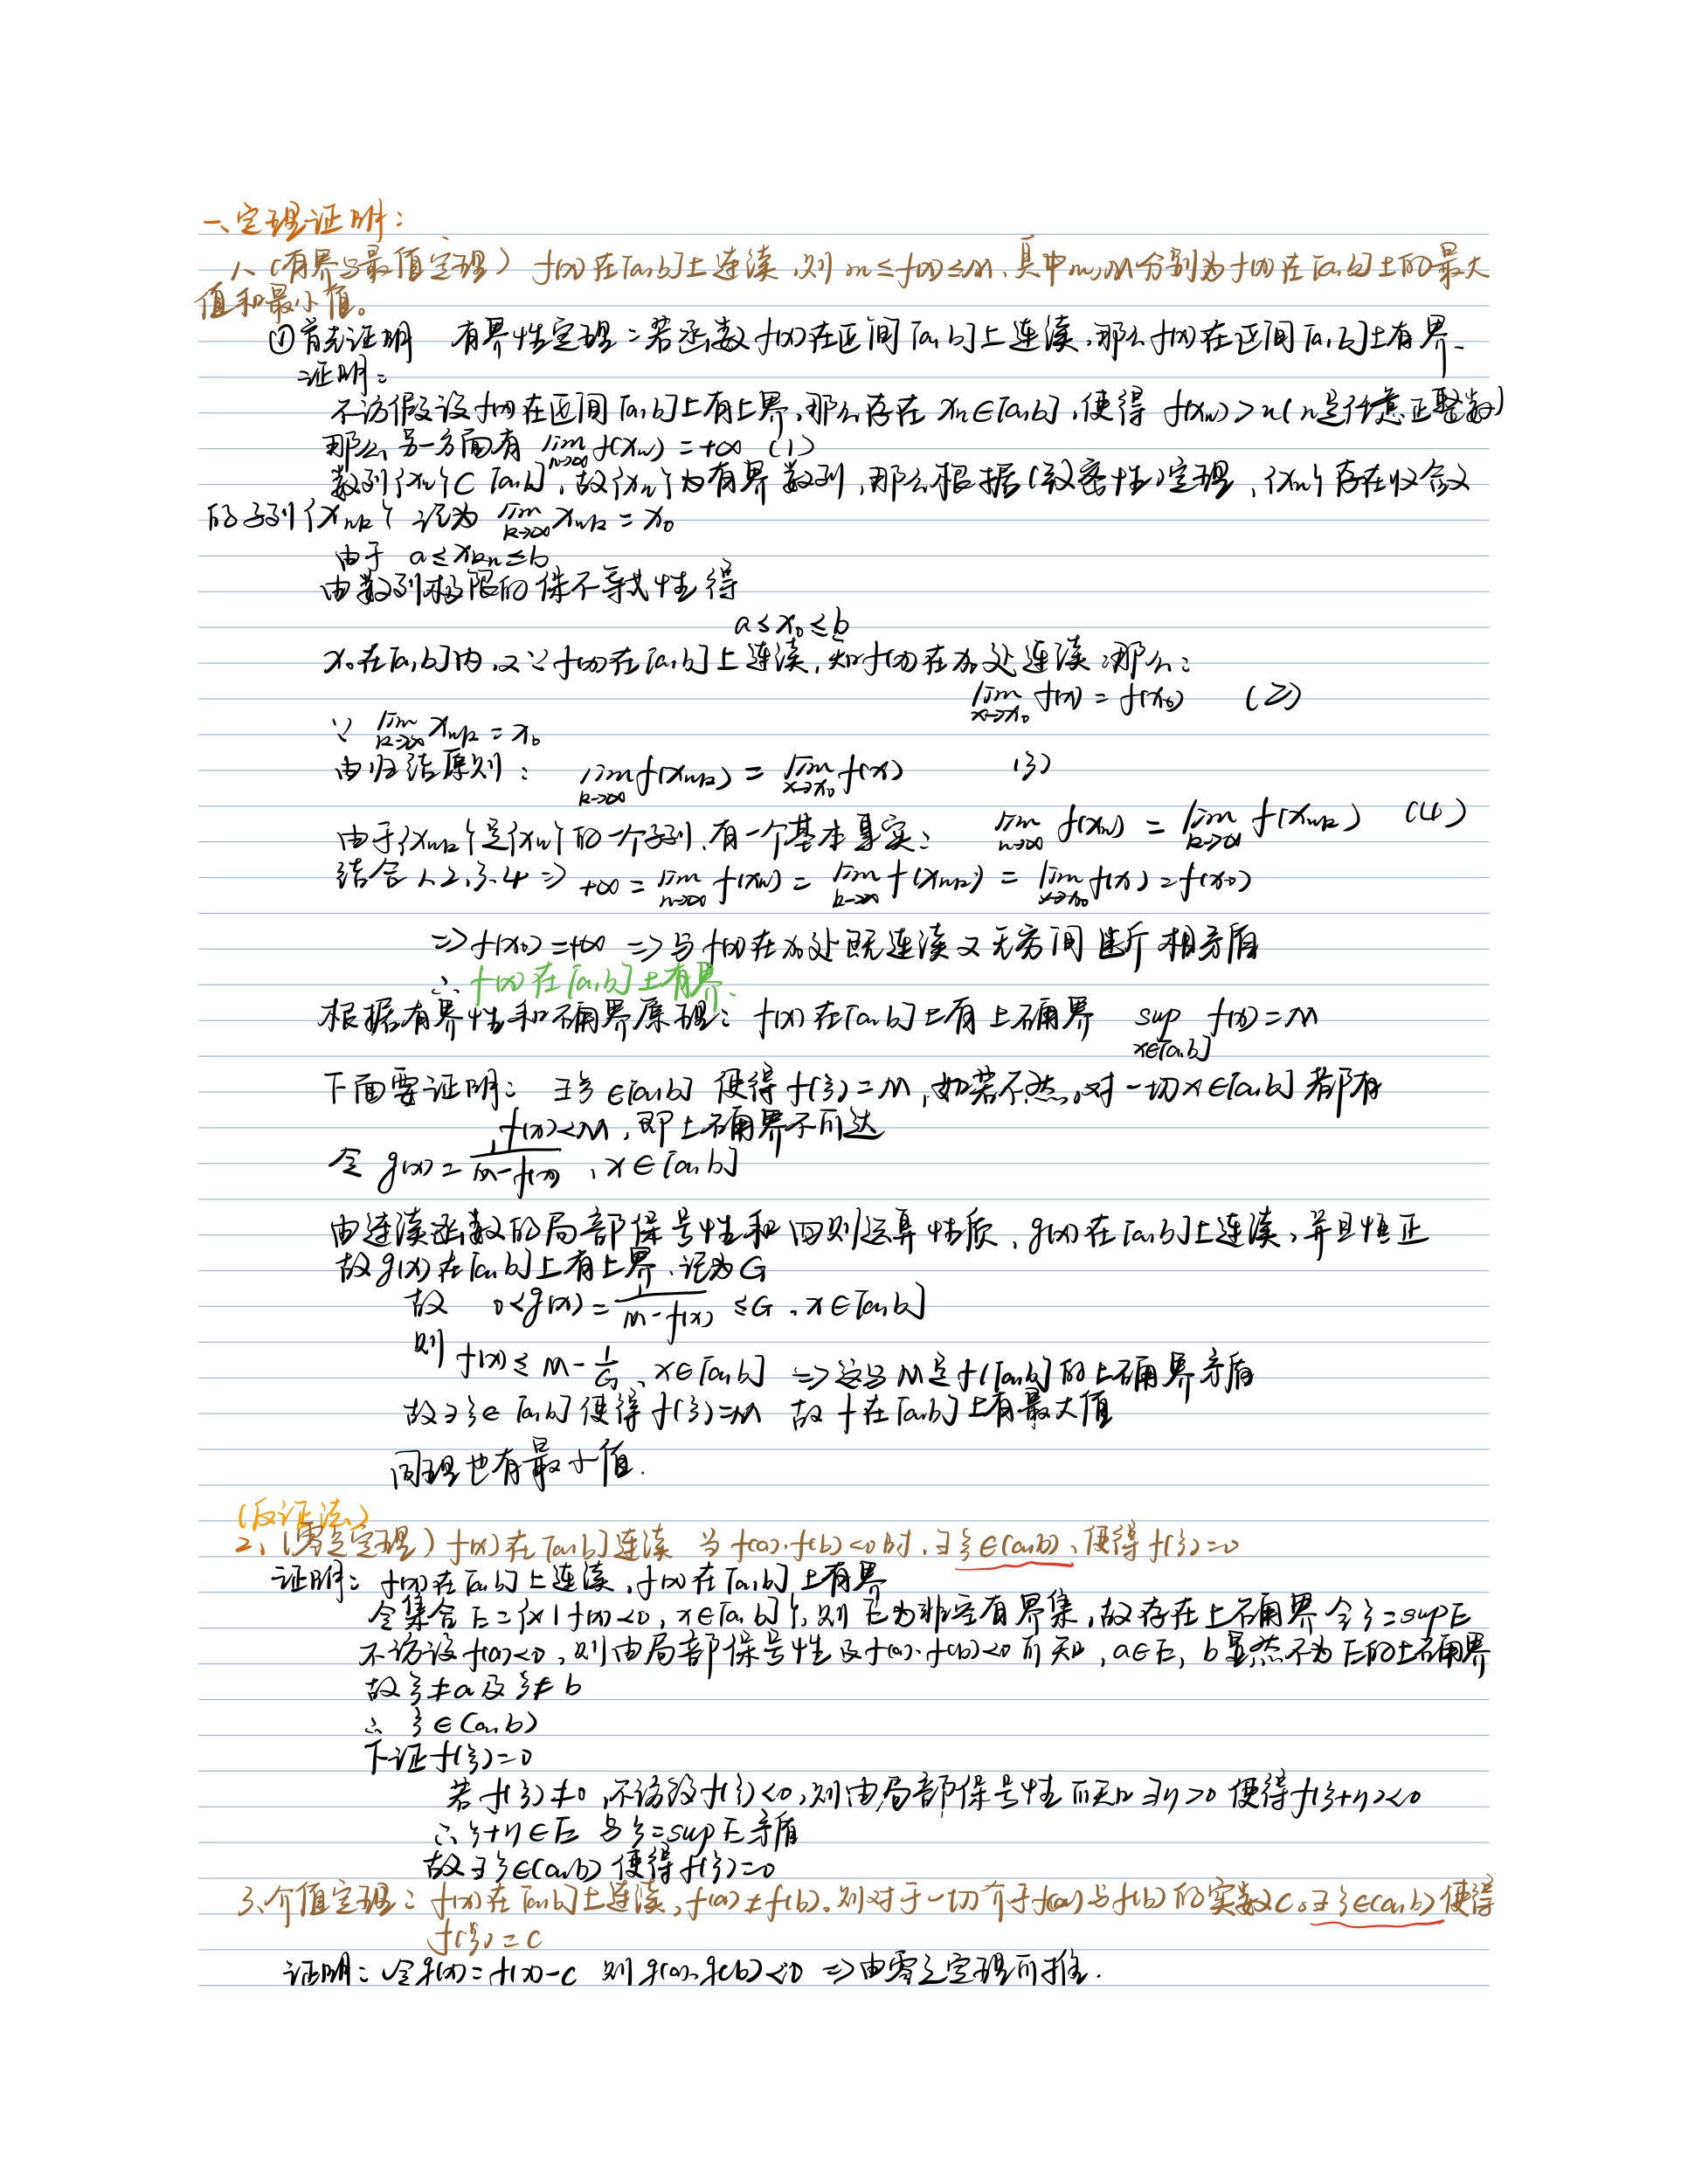 一、定理证明：
1、（有界与最值定理） f(x)在[a,b]上连续，则 m≤f(x)≤M，其中m,M分别为f(x)在[a,b]上的最大
值和最小值。
①首先证明 有界性定理：若函数f(x)在区间[a,b]上连续，那么f(x)在区间[a,b]上有界.
证明：
不访假设f(x)在区间[a,b]上有上界，那么存在 xn∈[a,b]，使得 f(xn)>n（n是任意正整数）
那么，另一方面有 lim n→∞ f(xn)=+∞ （1）
数列{xn}⊂[a,b]，故{xn}为有界数列，那么根据（致密性）定理，{xn}存在收敛
的子列{xnk} 记为 lim k→∞ xnk=x0
由于 a≤xkn≤b
由数列极限的保不等式性得
a≤x0≤b
x0在[a,b]内，又∵f(x)在[a,b]上连续，知f(x)在x0处连续，那么：
lim x→x0 f(x)=f(x0) （2）
∵ lim k→∞ xnk=x0
由归结原则： lim k→∞ f(xnk)=lim x→x0 f(x) （3）
由于{xnk}是{xn}的一个子列，有一个基本事实： lim n→∞ f(xn)=lim k→∞ f(xnk) （4）
结合1、2、3、4⇒ +∞=lim n→∞ f(xn)=lim k→∞ f(xnk)=lim x→x0 f(x)=f(x0)
⇒f(x0)=+∞ ⇒与f(x)在x0处既连续又无穷间断相矛盾
∴ f(x)在[a,b]上有界.
根据有界性和确界原理：f(x)在[a,b]上有上确界 sup x∈[a,b] f(x)=M
下面要证明：∃ξ∈[a,b] 使得f(ξ)=M，如若不然，对一切x∈[a,b]都有
f(x)<M，即上确界不可达
令 g(x)=1/(M-f(x))，x∈[a,b]
由连续函数的局部保号性和四则运算性质，g(x)在[a,b]上连续，并且恒正
故g(x)在[a,b]上有上界、记为G
故 0<g(x)=1/(M-f(x))≤G，x∈[a,b]
则 f(x)≤M-1/G，x∈[a,b] ⇒这与M是f([a,b])的上确界矛盾
故∃ξ∈[a,b]使得f(ξ)=M 故f在[a,b]上有最大值
同理也有最小值.
（反证法）
2、（零点定理）f(x)在[a,b]连续 当f(a)·f(b)<0时，∃ξ∈(a,b)，使得f(ξ)=0
证明：f(x)在[a,b]上连续，f(x)在[a,b]上有界
令集合E={x|f(x)<0，x∈[a,b]}，则E为非空有界集，故存在上确界 令ξ=supE
不访设f(a)<0，则由局部保号性及f(a)·f(b)<0可知，a∈E，b显然不为E的上确界
故ξ≠a及ξ≠b
∴ ξ∈(a,b)
下证f(ξ)=0
若f(ξ)≠0，不访设f(ξ)<0，则由局部保号性可知∃η>0 使得f(ξ+η)<0
∴ξ+η∈E 与ξ=supE矛盾
故∃ξ∈(a,b)使得f(ξ)=0
3、介值定理：f(x)在[a,b]上连续，f(a)≠f(b)。则对于一切介于f(a)与f(b)的实数C。∃ξ∈(a,b)使得
f(ξ)=C
证明：令g(x)=f(x)-C 则g(a)·g(b)<0 ⇒由零点定理可推.